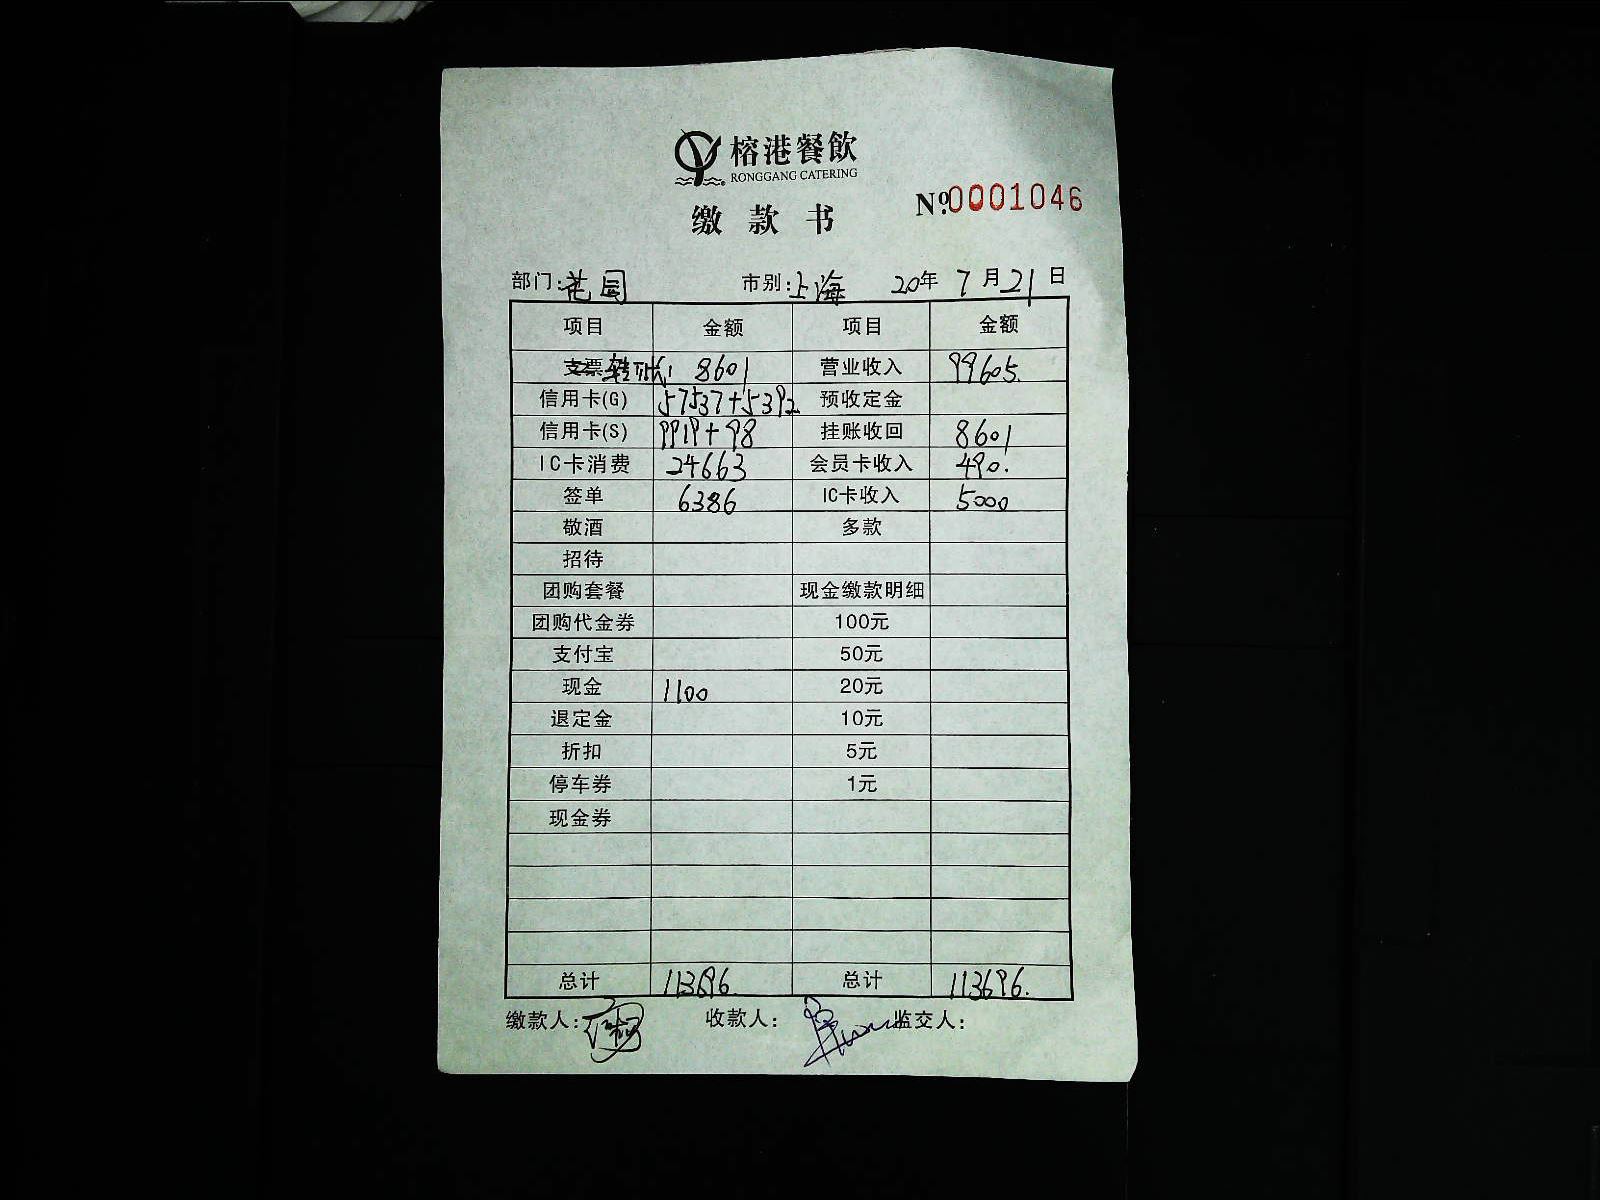 榕港餐飲
RONGGANG CATERING
缴款书
№0001046
部门:花园 市别:上海 20年7月21日
项目 金额 项目 金额
支票 8601 营业收入 99605.
信用卡(G) 57537+5392 预收定金
信用卡(S) 9919+98 挂账收回 8601
IC卡消费 24663 会员卡收入 490.
签单 6386 IC卡收入 5000
敬酒 多款
招待
团购套餐 现金缴款明细
团购代金券 100元
支付宝 50元
现金 1100 20元
退定金 10元
折扣 5元
停车券 1元
现金券
总计 113696. 总计 113696.
缴款人: 收款人: 监交人: